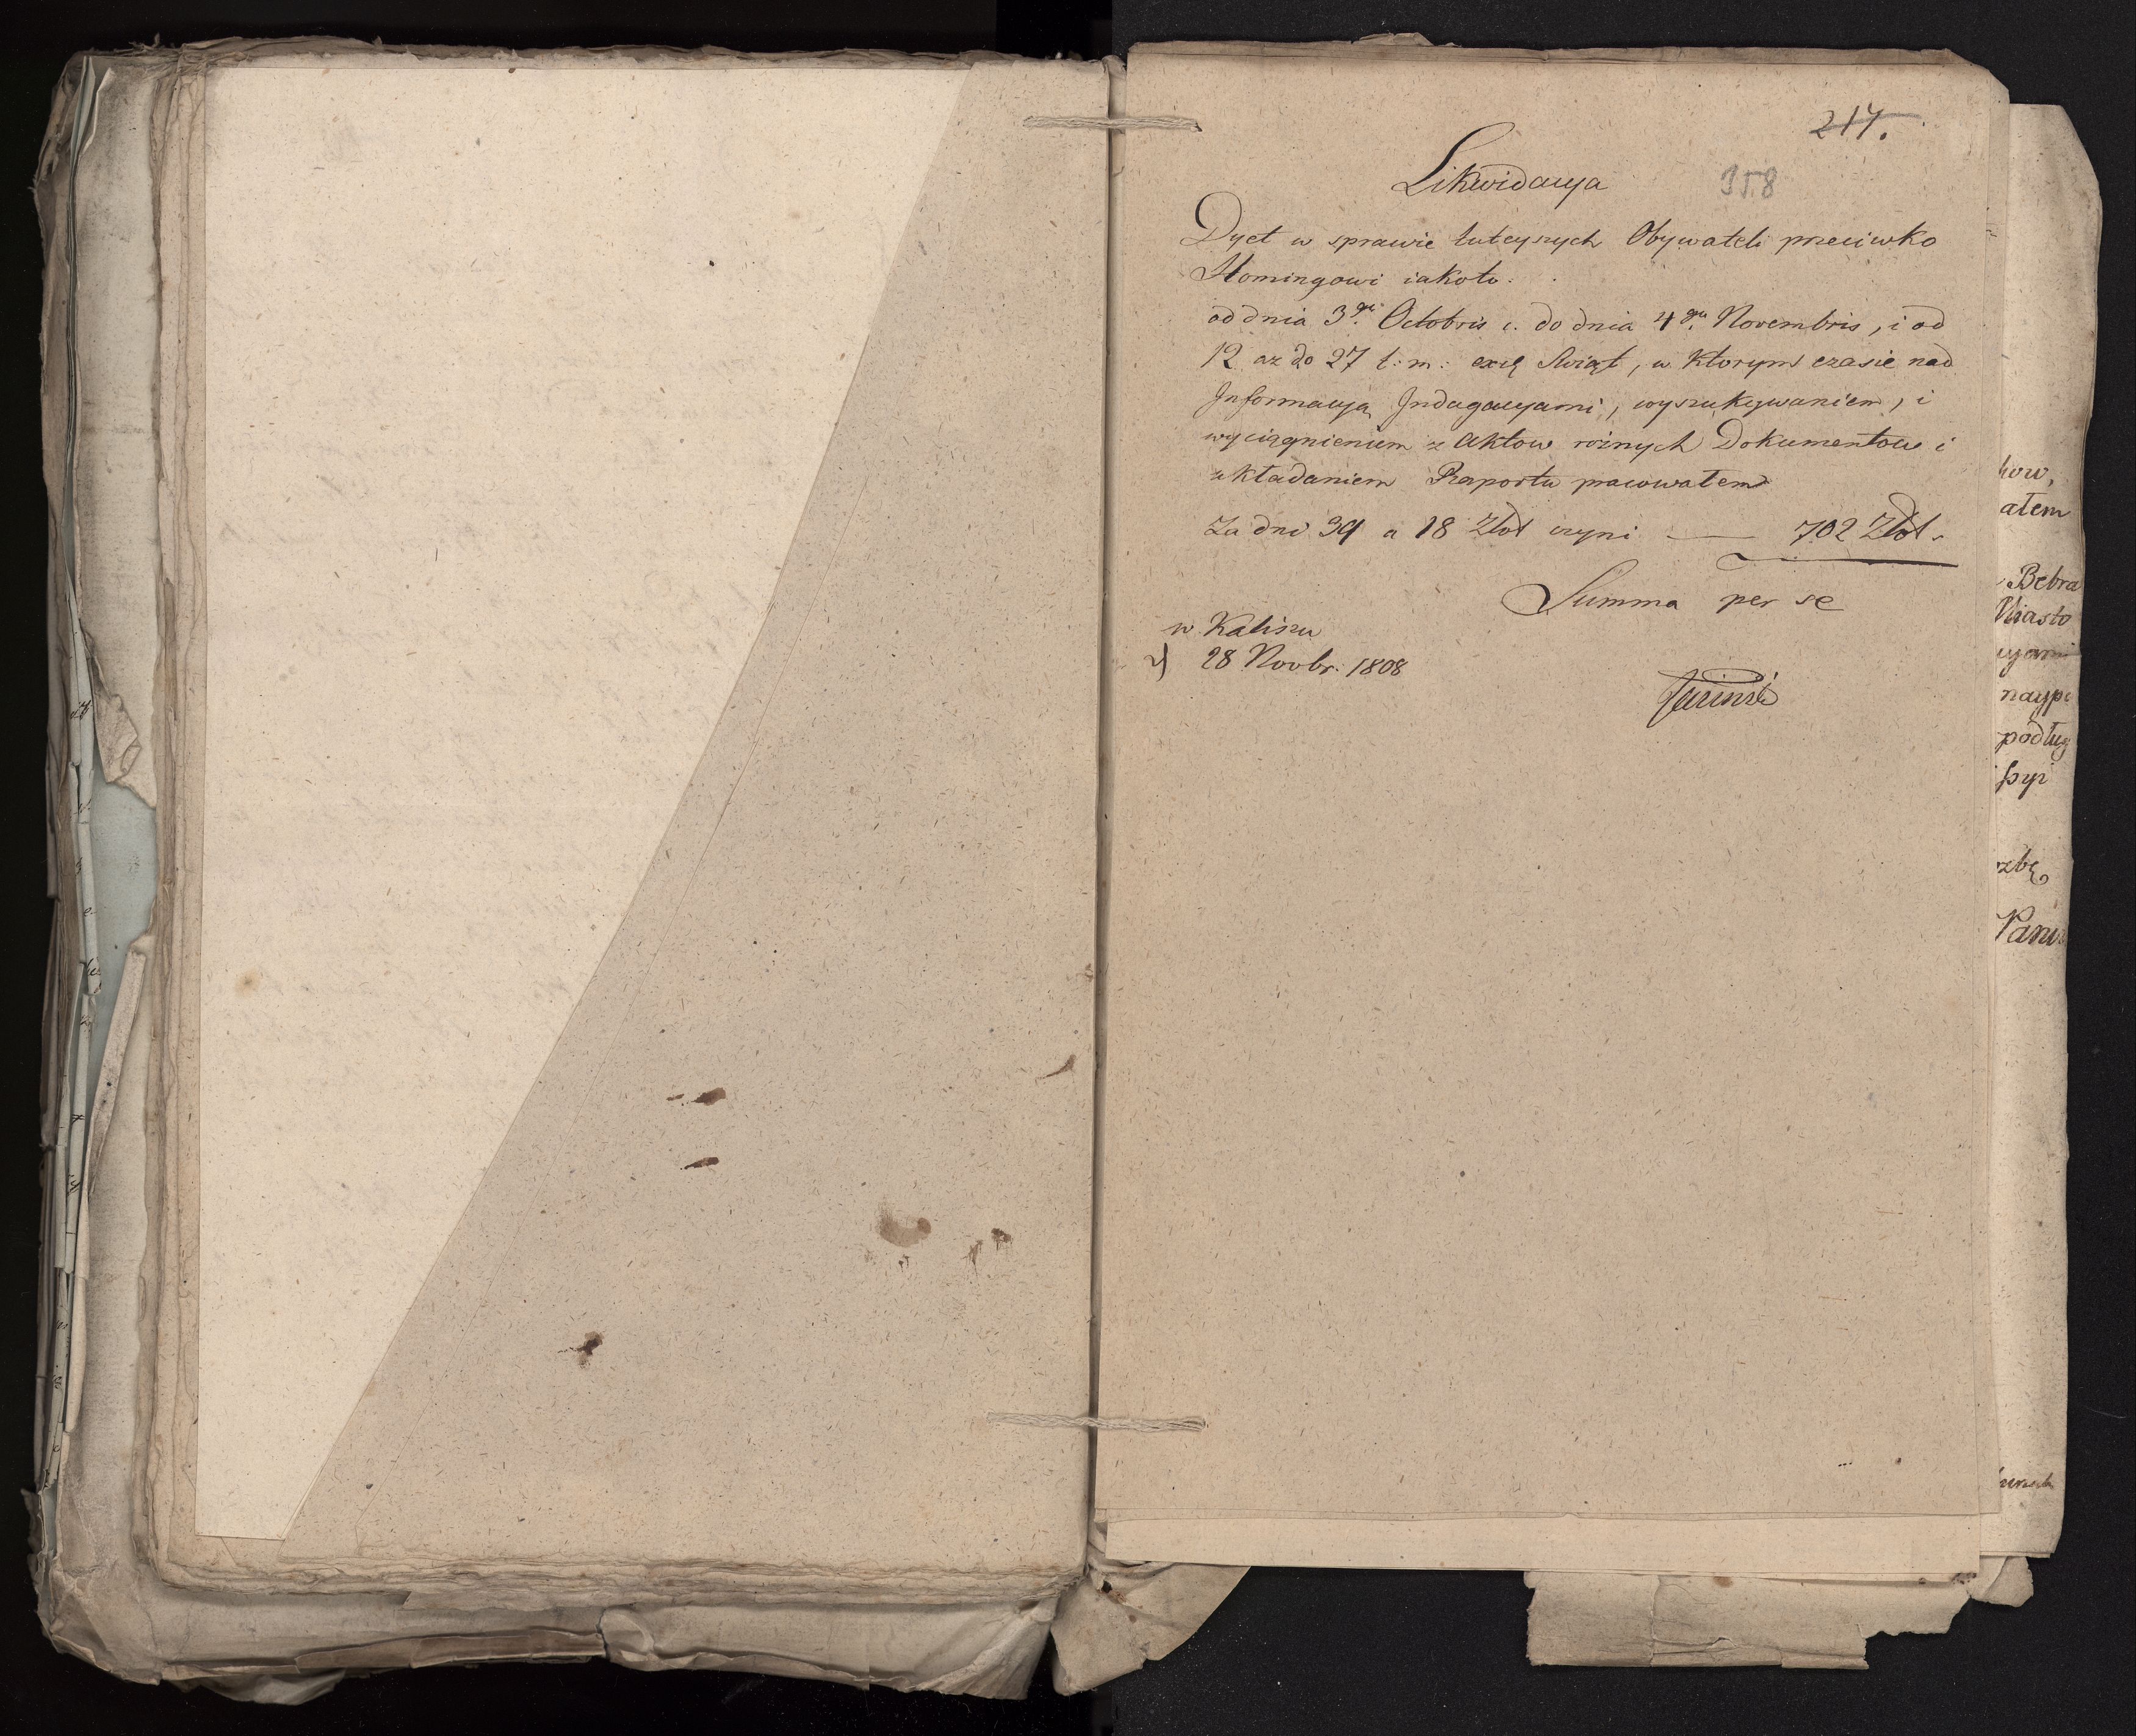 217.
358
Likwidacya
Dyet w sprawie tuteyszych Obywateli przeciwko
iakoto:
od dnia 3go Octobris c. do dnia 4go Novembris, i od
12 az do 27 t: m: Swiąt, w ktorym czasie nad
Informacyą Indagacyami, wyszukywaniem, i
wyciągnieniem z Aktow rożnych Dokumentow i
układaniem Raportu pracowałem
Za dni 39 a 18 Złot czyni — 702 Złot.
Summa per se
w Kaliszu
28 Novbr. 1808
how,
ałem
Bebra
Miasto
cyami
naypi
podług
szyi
czbę